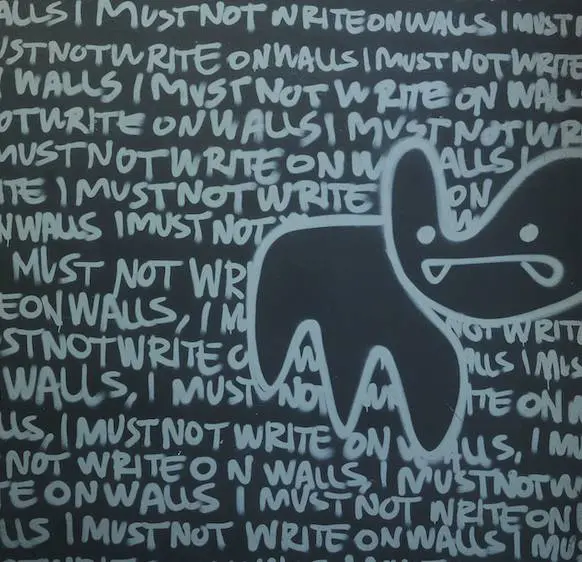 ALLS I MUST NOT WRITE ON WALLS I MUST
UST NOT WRITE ON WALLS I MUST NOT WRITE
WALLS I MUST NOT WRITE ON WALL
OT WRITE ON WALLS I MUST NOT WR
MUST NOT WRITE ON W ALLS I
ITE I MUST NOT WRITE ON
N WALLS I MUST NOT
MUST NOT WR
E ON WALLS, I M NOT WRIT
ST NOT WRITE O ALLS I MUS
WALLS, I MUST NO ITE ON
LLS, I MUST NOT WRITE ON WALLS, I M
NOT WRITE ON WALLS, I MUST NOT W
TE ON WALLS I MUST NOT WRITE ON
LLS I MUST NOT WRITE ON WALLS I MUS